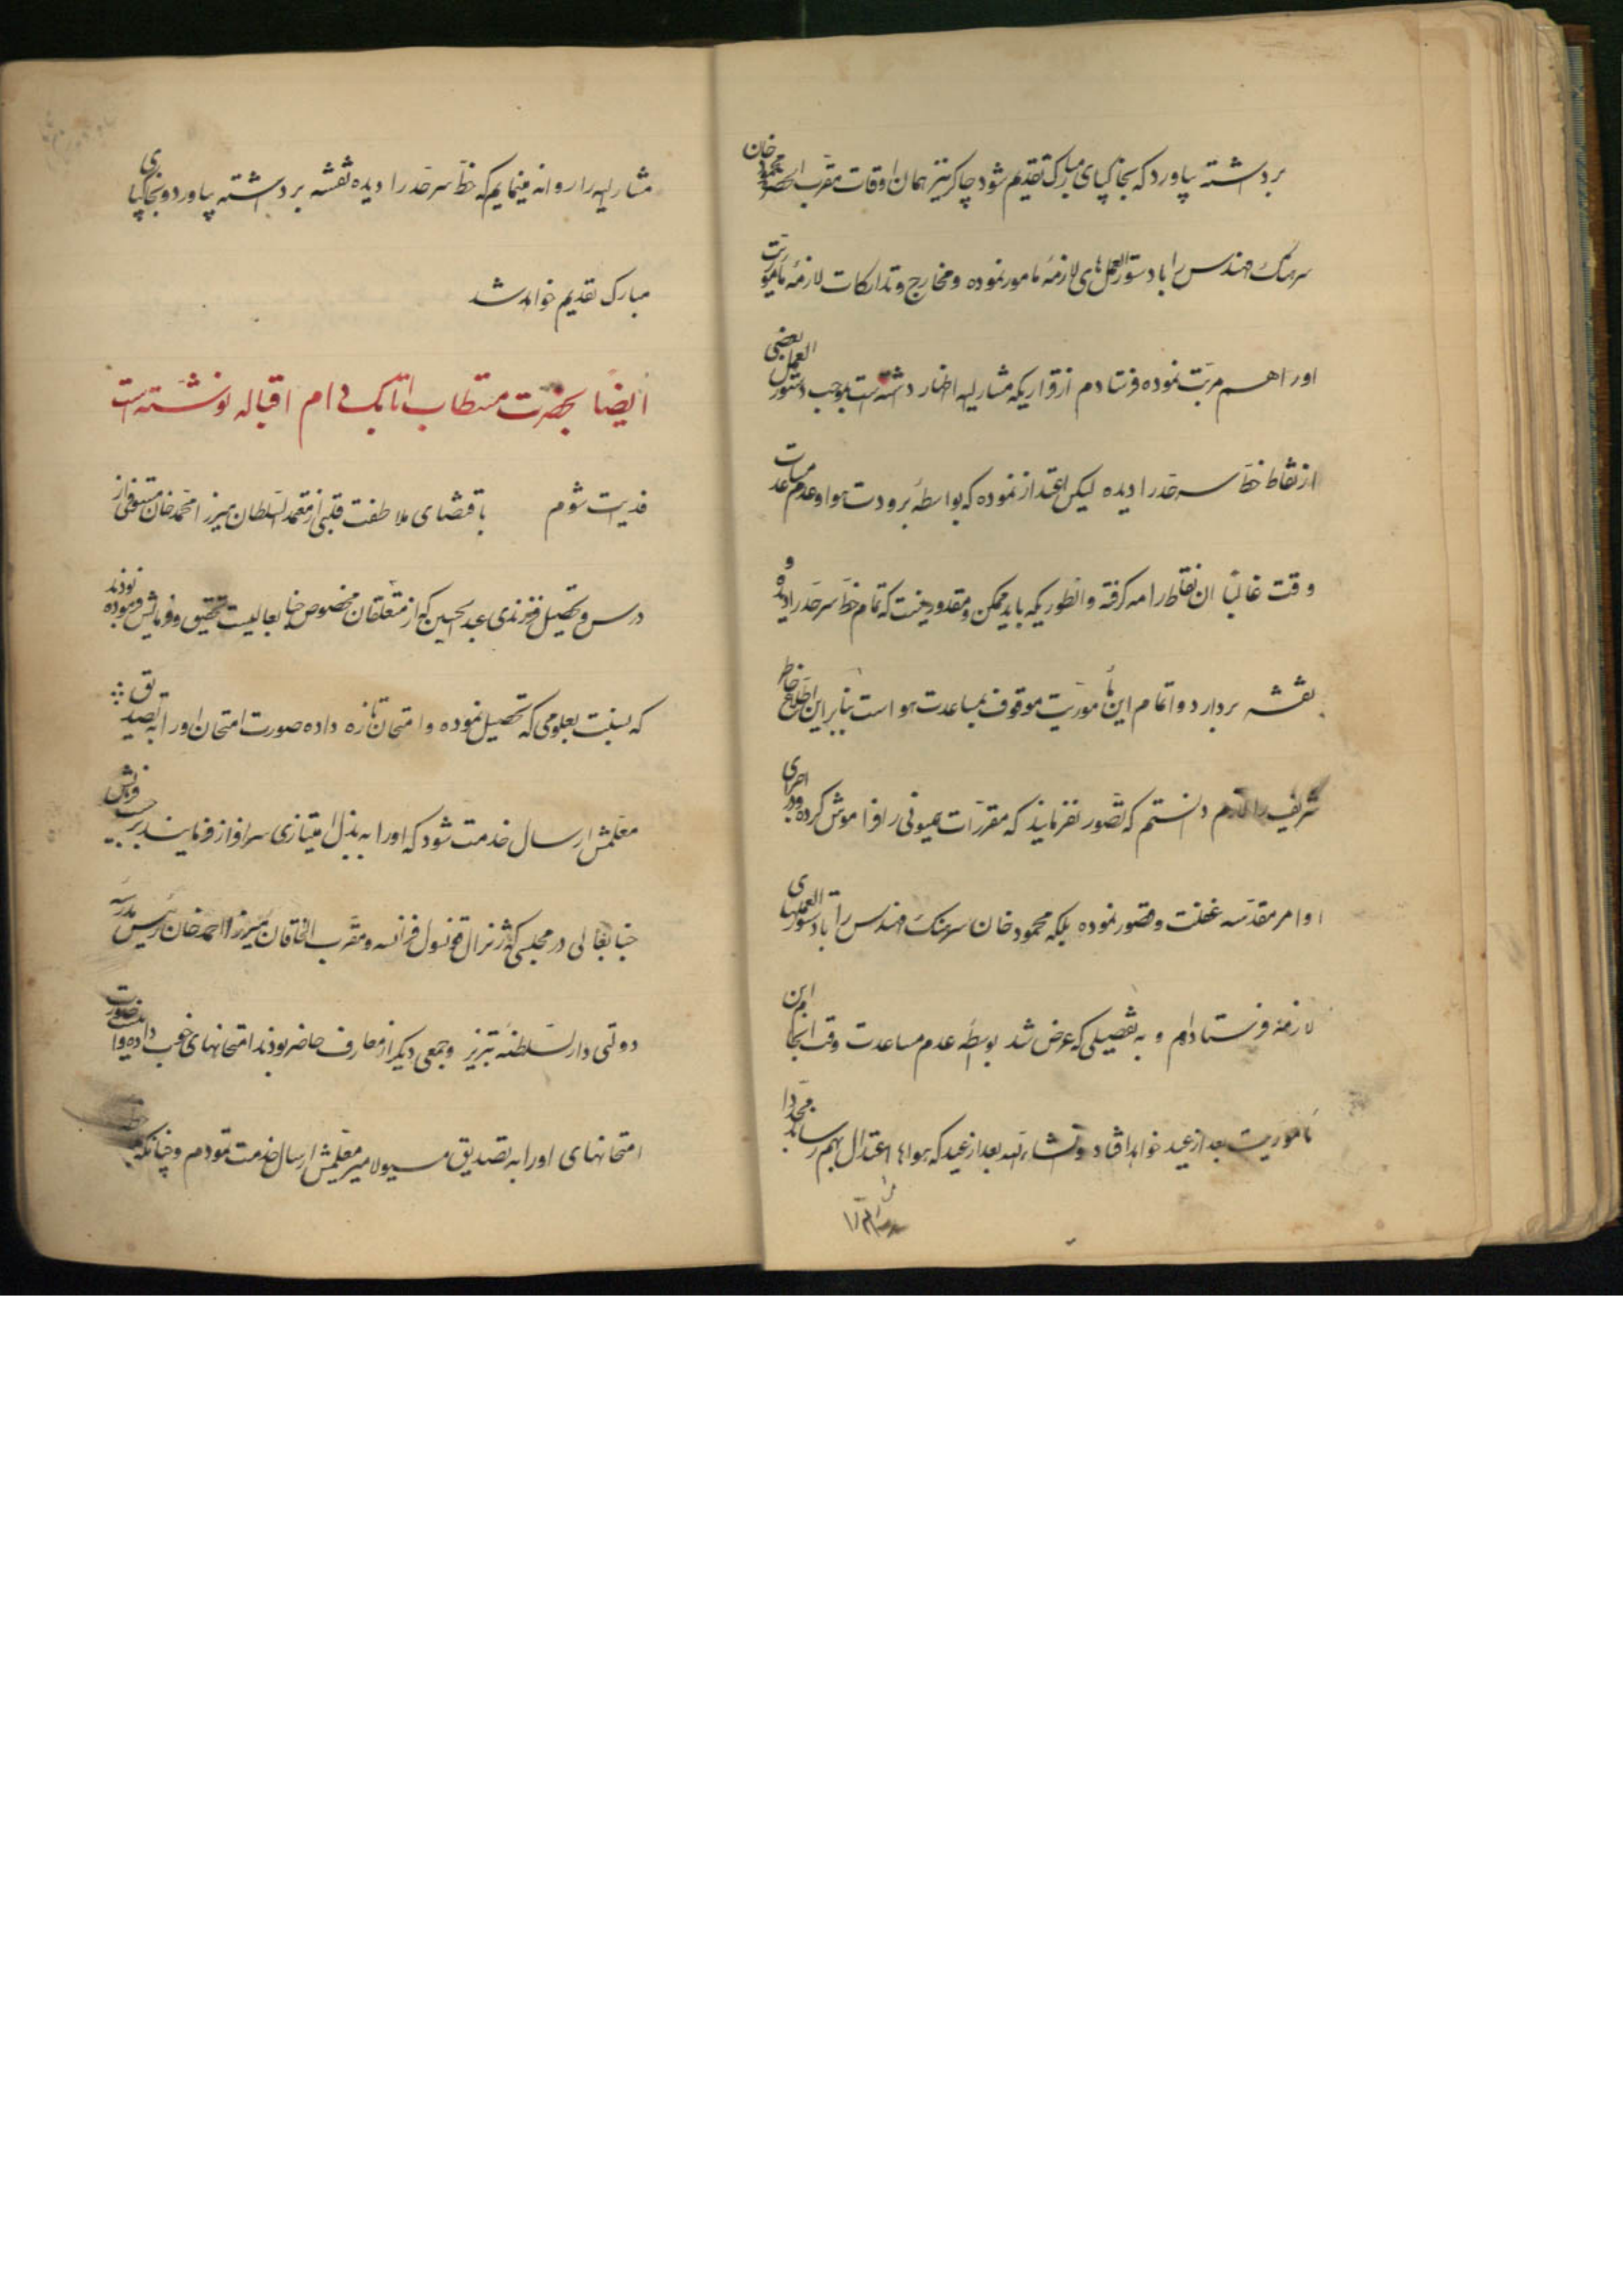 برداشته بیاورد که بخاکپای مبارک تقدیم شود چاکر نیز همان اوقات مقرب الحضره محمود خان
سرهنک مهندس را با دستورالعمل های لازمهٔ مامور نموده و مخارج و تدارکات لازمهٔ ماموریت
او را هم مرتب نموده فرستادم از قراریکه مشارالیه اظهار داشته است بموجب دستور العمل بعضی
از نقاط خط سرحد را دیده لیکن اعتذار نموده که بواسطهٔ برودت هوا و عدم مساعدت
وقت غالباً ان نقاط را مه گرفته و انطوریکه باید ممکن و مقدور نیست که تمام خط سرحد را دیده و
نقشه بردارد و اتمام این مأموریت موقوف بمساعدت هوا است بنابراین اطلاع خاطر
شریف را لازم دانستم که تصور نفرمایند که مقررات همیونی را فراموش کرده و در اجرای
اوامر مقدسه غفلت و قصور نموده بلکه محمود خان سرهنک مهندس را با دستور العملهای
لازمه فرستاده‌ام و به تفصیلی که عرض شد بواسطه عدم مساعدت وقت انجام این
مأموریت بعد از عید خواهد افتاد و انشاءالله بعد از عید که هواها اعتدال بهم رساند مجدداً
مشارالیه را روانه مینمایم که خط سرحد را دیده نقشه برداشته بیاورد و بخاکپای
مبارک تقدیم خواهد شد
ایضاً بحضرت مستطاب اتابک دام اقباله نوشته است
فدیت شوم باقتضای ملاطفت قلبی از معتمد السلطان میرزا محمد خان مستوفی از
درس و تحصیل فرزندی عبدالحسین که از متعلقان مخصوص جنابعالیست تحقیق و فرمایش فرموده بودند
که بنسبت بعلومی که تحصیل نموده و امتحان تازه داده صورت امتحان او را به تصدیق
معلمش ارسال خدمت شود که او را به بذل امتیازی سرافراز فرمایند بر حسب فرمایش
جنابعالی در مجلسی که ژنرال قونسول فرانسه و مقرب الخاقان میرزا احمد خان رئیس مدرسه
دولتی دارالسلطنه تبریز و جمعی دیکر از معارف حاضر بودند امتحانهای خوب داده و صورت
امتحانهای او را به تصدیق مسیو لامپر معلمش ارسال خدمت نمودم و چنانکه